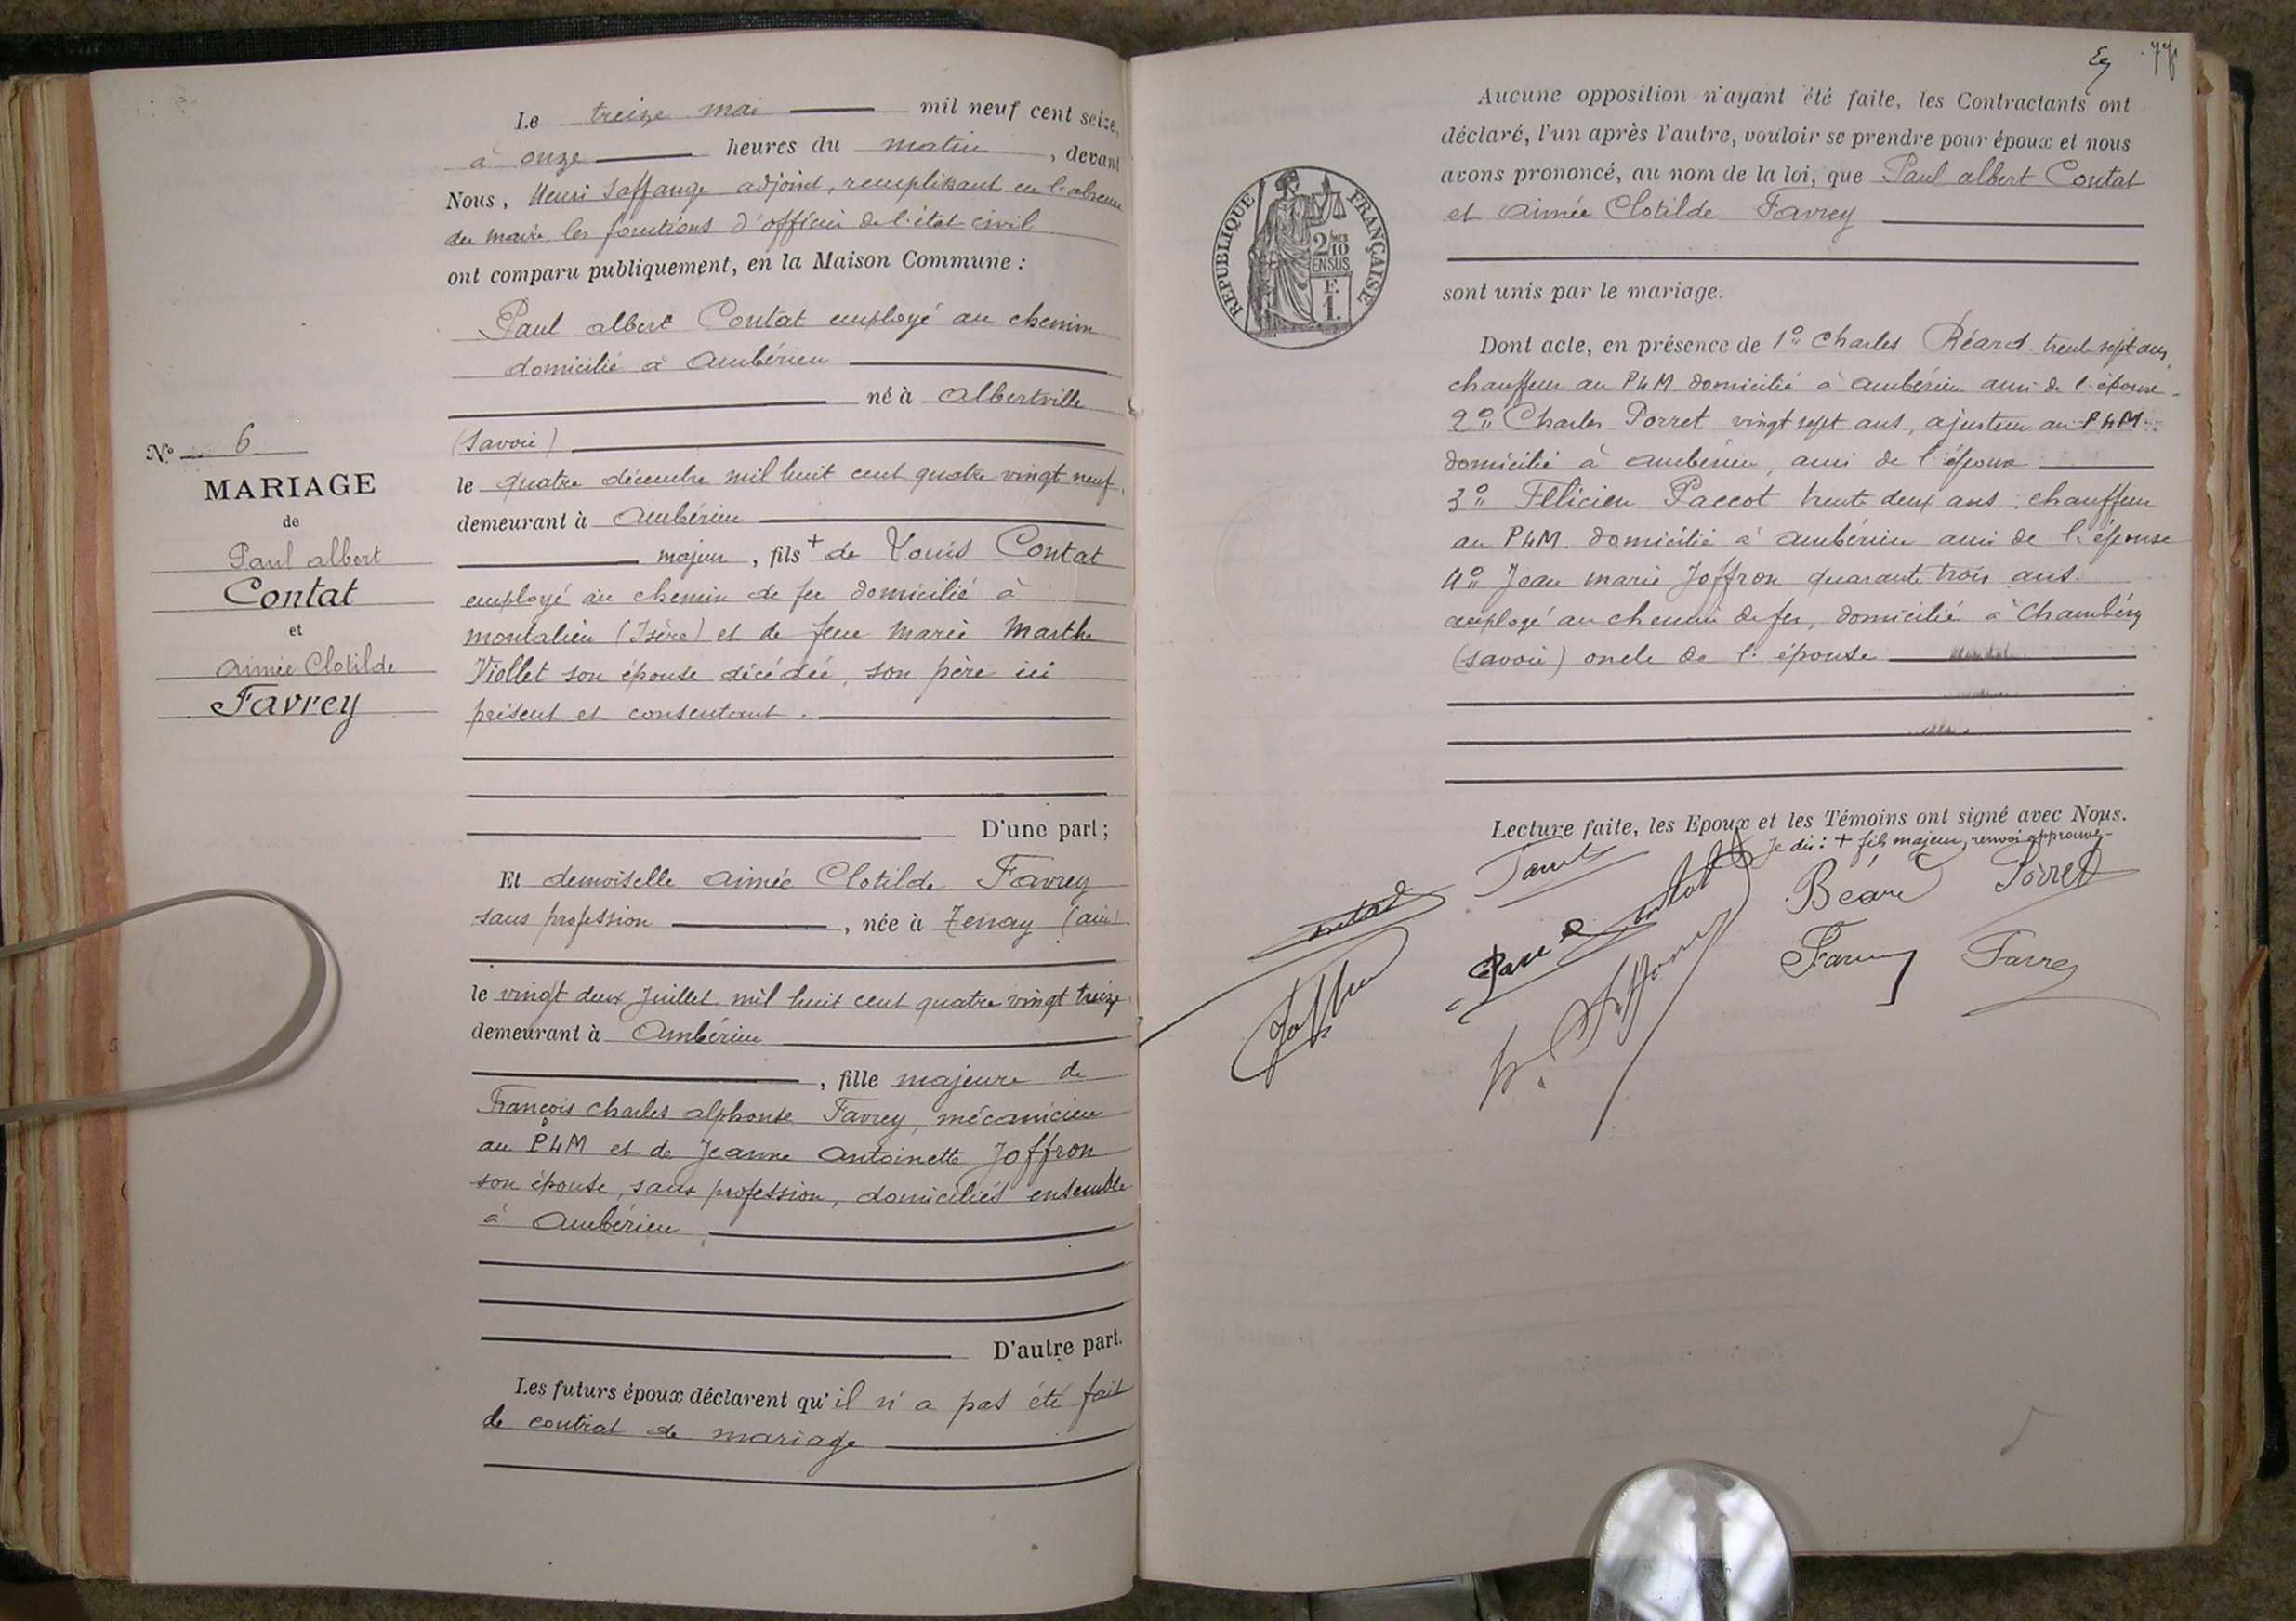 Le treize mai mil neuf cent seize,
à onze heures du matin, devant
Nous, Henri Saffange adjoint, remplissant en l'absence
du maire les fonctions d'officier de l'état civil
ont comparu publiquement, en la Maison Commune :
Paul albert Contat employé au chemin
domicilié à Ambérieu
né à Albertville
(Savoie)
le quatre décembre mil huit cent quatre vingt neuf,
demeurant à Ambérieu
majeur, fils + de Louis Contat
employé au chemin de fer domicilié à
montalieu (Isère) et de feue Marie Marthe
Viollet son épouse décédée, son père ici
présent et consentant.
D'une part;
Et demoiselle Aimée Clotilde Favrey
sans profession, née à Tenay (ain)
le vingt deux Juillet mil huit cent quatre vingt treize
demeurant à Ambérieu
, fille majeure de
François Charles alphonse Favrey, mécanicien
au PLM et de Jeanne Antoinette Joffron
son épouse, sans profession, domiciliés ensemble
à Ambérieu
D'autre part.
Les futurs époux déclarent qu'il n'a pas été fait
de contrat de mariage
N° 6
MARIAGE
de
Paul albert
Contat
et
Aimée Clotilde
Favrey
77
Aucune opposition n'ayant été faite, les Contractants ont
déclaré, l'un après l'autre, vouloir se prendre pour époux et nous
avons prononcé, au nom de la loi, que Paul albert Contat
et Aimée Clotilde Favrey
sont unis par le mariage.
RÉPUBLIQUE FRANÇAISE
2/10
EN SUS
F.
1.
Dont acte, en présence de 1° Charles Béard trente sept ans,
chauffeur au PLM domicilié à Ambérieu ami de l'épouse
2° Charles Porret vingt sept ans, ajusteur au PLM
domicilié à Ambérieu, ami de l'époux
3° Félicien Paccot trente deux ans, chauffeur
au PLM. domicilié à Ambérieu ami de l'épouse
4° Jean marie Joffron quarante trois ans.
employé au chemin de fer, domicilié à Chambéry
(Savoie) oncle de l'épouse
Lecture faite, les Epoux et les Témoins ont signé avec Nous.
Je dis : + fils majeur, renvoi approuvé
Béard Porret
Favrey Favrey
Joffron